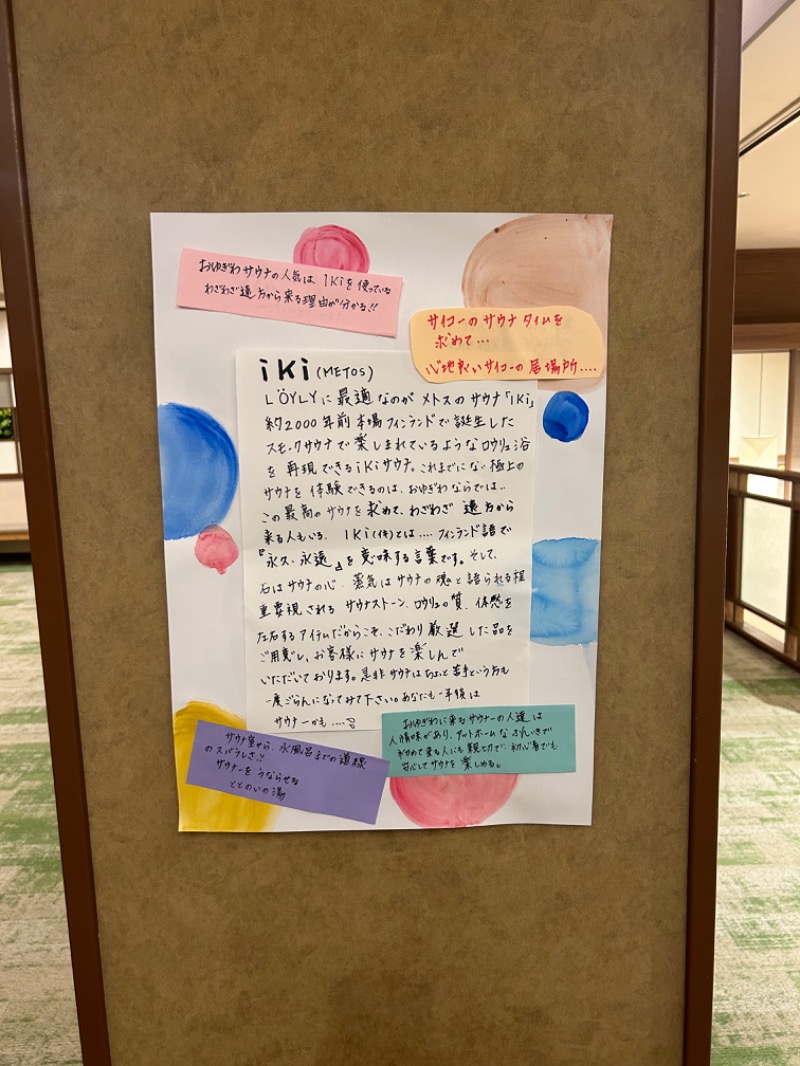 おゆぎわサウナの人気は IKiを使っている
わざわざ遠方から来る理由が分かる!!
サイコーのサウナタイムを
求めて...
心地良いサイコーの居場所....
iki (METOS)
LÖYLYに最適なのが メトスのサウナ「IKi」
約2000年前本場フィンランドで誕生した
スモークサウナで楽しまれているようなロウリュ浴
を再現できるikiサウナ。これまでにない極上の
サウナを体験できるのは、おゆぎわならでは..
この最高のサウナを求めて、わざわざ遠方から
来る人もいる。IKi(イキ)とは....フィンランド語で
『永久・永遠』を意味する言葉です。そして、
石はサウナの心、蒸気はサウナの魂と語られる程
重要視される サウナストーン、ロウリュの質、体感を
左右するアイテムだからこそ、こだわり厳選した品を
ご用意し、お客様にサウナを楽しんで
いただいております。是非サウナはちょっと苦手という方も
一度ごらんになってみて下さい。あなたも一年後は
サウナーかも....
サウナ室から、水風呂までの導線
のスバラしさ!!
サウナーをうならせる
ととのいの湯
おゆぎわに来るサウナーの人達は
人情味があり、アットホームなふんいきで
初めて来る人にも親切で、初心者でも
安心してサウナを楽しめる。